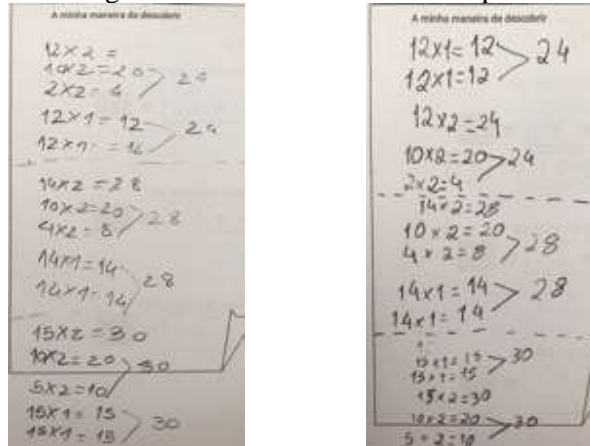 A minha maneira de descobrir
12×2 =
10×2=20
2×2=4
24
12×1=12
12×1 = 12
24
14×2=28
10×2=20
4×2=8
28
14×1=14
14×1=14
28
15×2=30
10×2=20
30
5×2=10
15×1=15
15×1=15
30
A minha maneira de descobrir
12×1=12
24
12×1=12
12×2=24
10×2=20
24
2×2=4
14×2=28
10×2=20
4×2=8
28
14×1=14
28
14×1=14
15×1=15
30
15×1=15
15×2=30
10×2=20
30
5×2=10